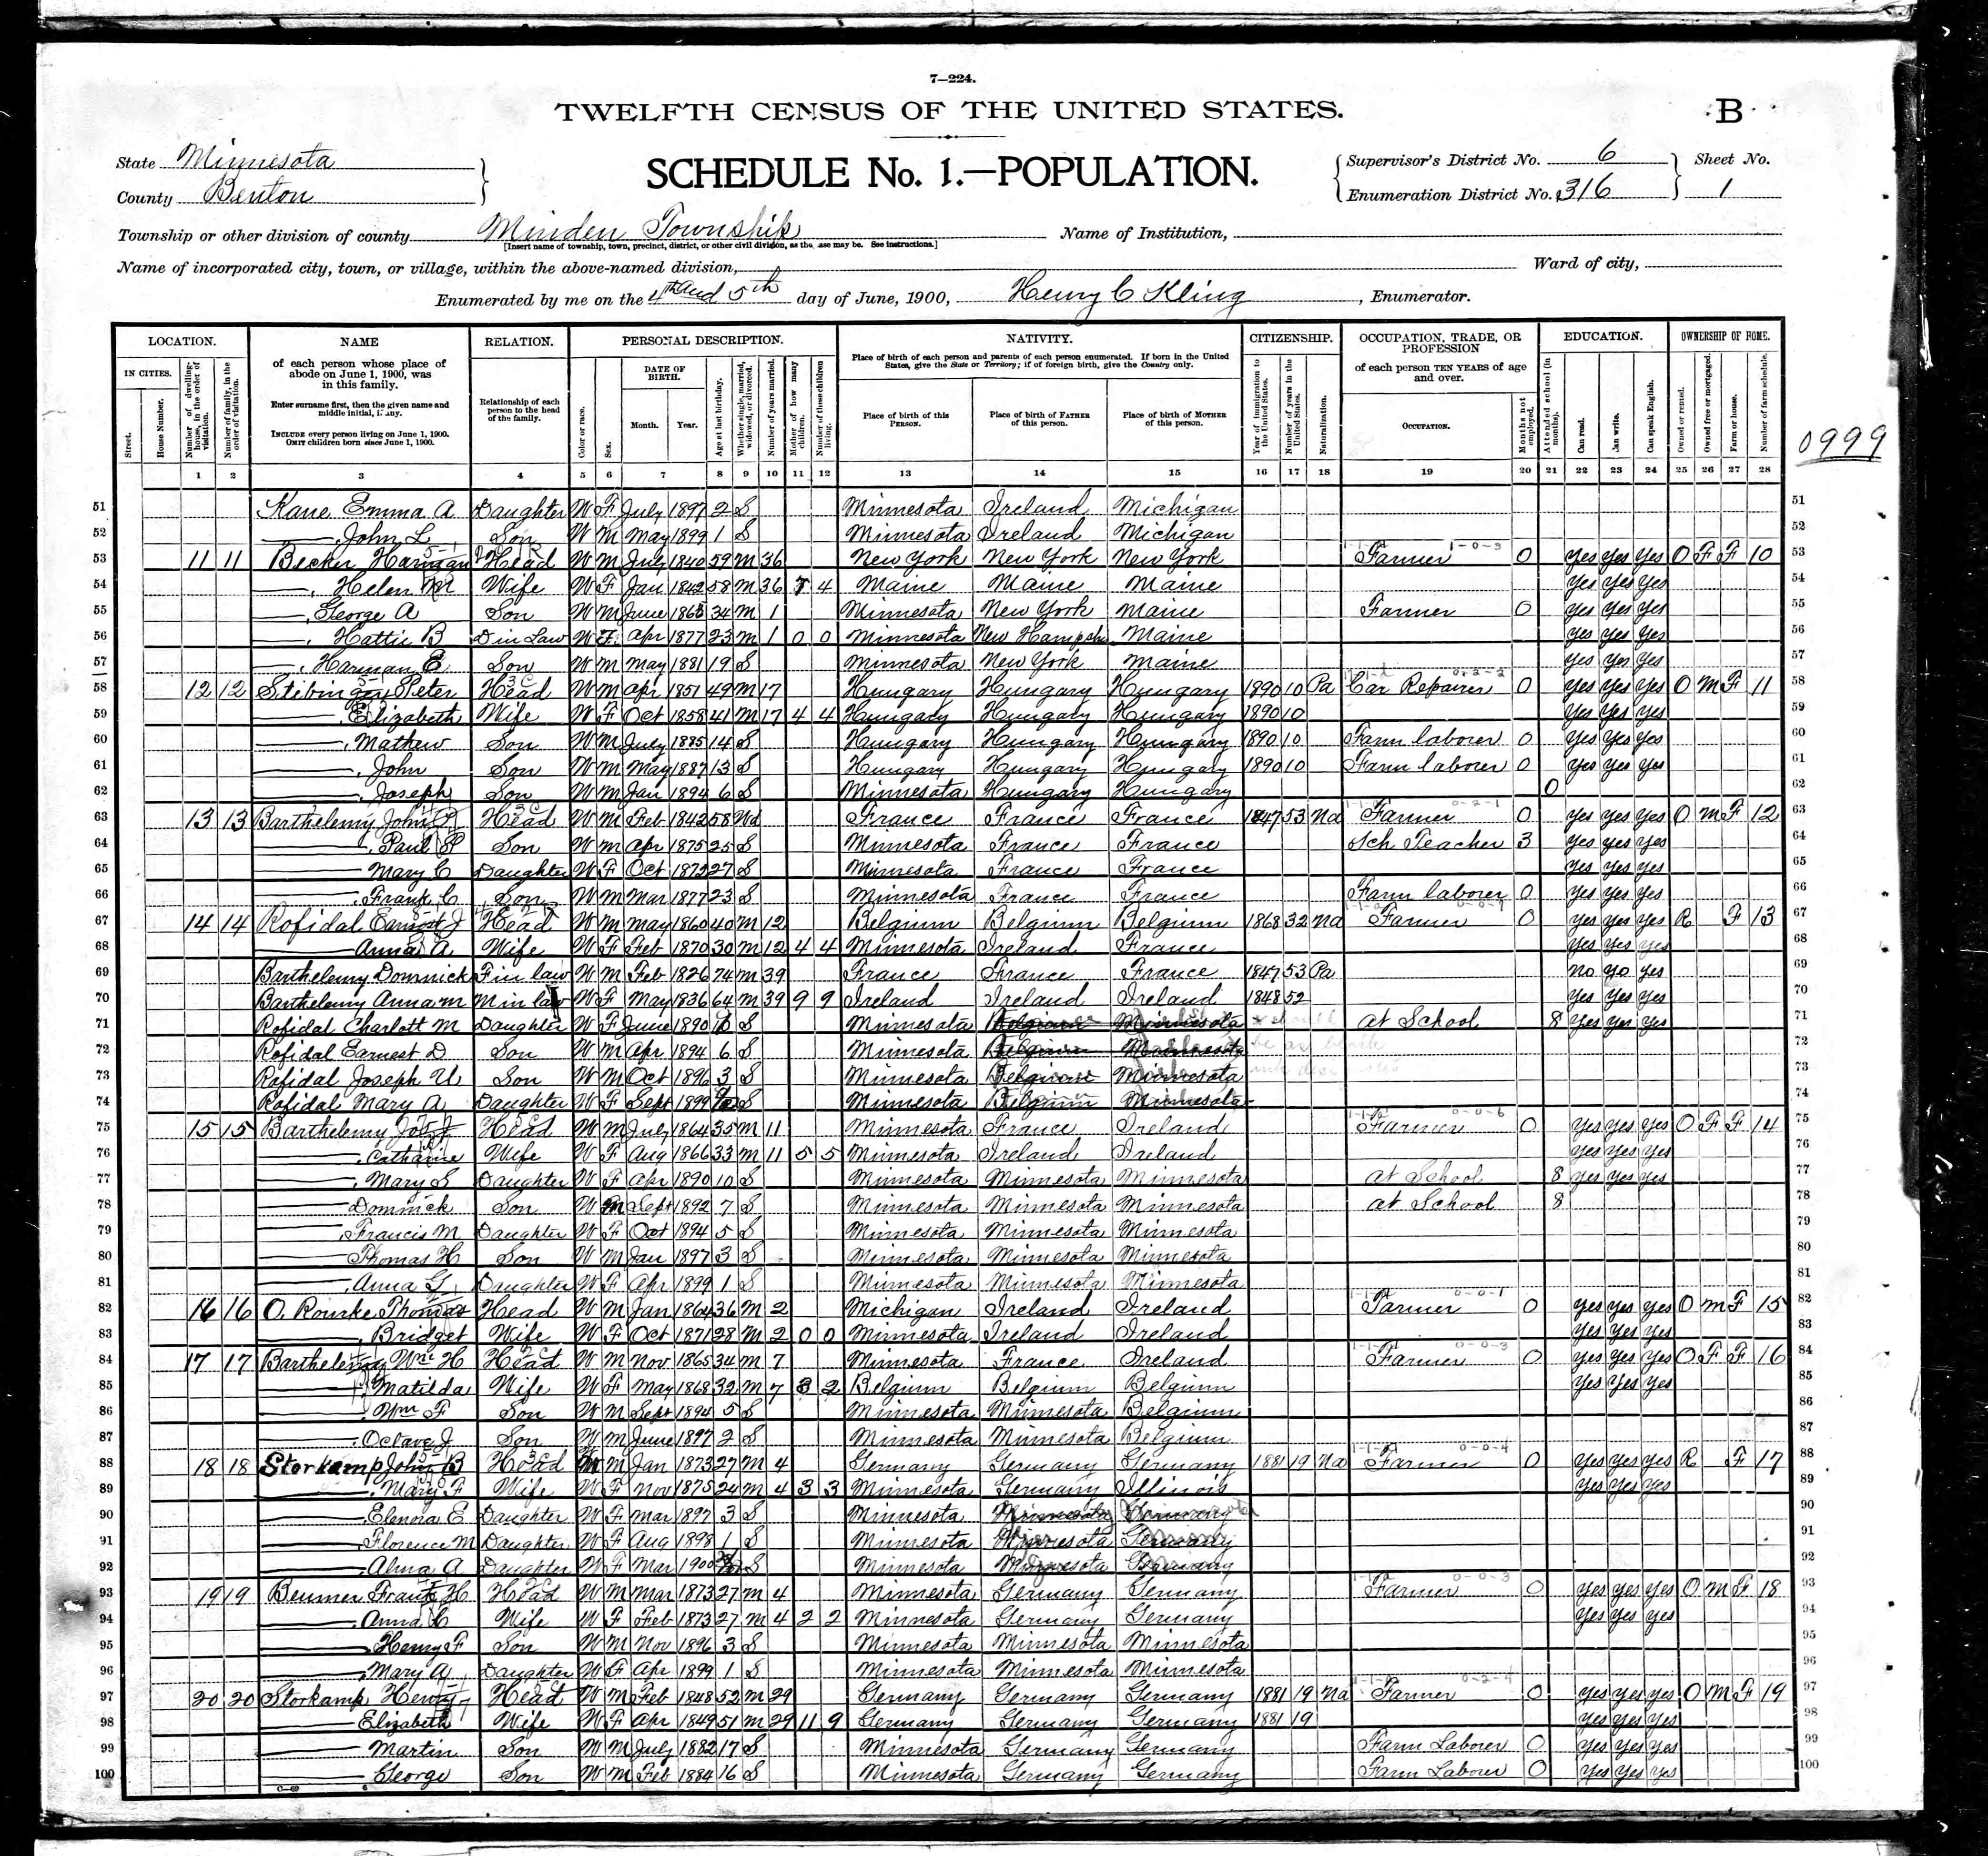 7—224.
TWELFTH CENSUS OF THE UNITED STATES.
B
State Minnesota
County Benton
SCHEDULE No. 1.—POPULATION.
Supervisor's District No. 6
Enumeration District No. 316
Sheet No. 1
Township or other division of county Minden Township
[Insert name of township, town, precinct, district, or other civil division, as the case may be. See instructions.]
Name of Institution,
Name of incorporated city, town, or village, within the above-named division,
Ward of city,
Enumerated by me on the 4th and 5th day of June, 1900, Henry C Kling, Enumerator.
0999
LOCATION. NAME RELATION. PERSONAL DESCRIPTION. NATIVITY. CITIZENSHIP. OCCUPATION, TRADE, OR PROFESSION EDUCATION. OWNERSHIP OF HOME.
IN CITIES. Street. House Number.
Number of dwelling-house, in the order of visitation.
Number of family, in the order of visitation.
of each person whose place of abode on June 1, 1900, was in this family.
Enter surname first, then the given name and middle initial, if any.
INCLUDE every person living on June 1, 1900. OMIT children born since June 1, 1900.
Relationship of each person to the head of the family.
Color or race. Sex. DATE OF BIRTH. Month. Year. Age at last birthday. Whether single, married, widowed, or divorced. Number of years married. Mother of how many children. Number of these children living.
Place of birth of each person and parents of each person enumerated. If born in the United States, give the State or Territory; if of foreign birth, give the Country only.
Place of birth of this PERSON. Place of birth of FATHER of this person. Place of birth of MOTHER of this person.
Year of immigration to the United States. Number of years in the United States. Naturalization.
of each person TEN YEARS of age and over.
OCCUPATION. Months not employed.
Attended school (in months). Can read. Can write. Can speak English.
Owned or rented. Owned free or mortgaged. Farm or house. Number of farm schedule.
1 2 3 4 5 6 7 8 9 10 11 12 13 14 15 16 17 18 19 20 21 22 23 24 25 26 27 28
51 Kane Emma A Daughter W F July 1897 2 S Minnesota Ireland Michigan 51
52 John L Son W M May 1899 1 S Minnesota Ireland Michigan 52
53 11 11 Becker Harman Head W M July 1840 59 M 36 New York New York New York Farmer 0 Yes Yes Yes O F F 10 53
54 Helen M Wife W F Jan 1842 58 M 36 7 4 Maine Maine Maine Yes Yes Yes 54
55 George A Son W M June 1865 34 M 1 Minnesota New York Maine Farmer 0 Yes Yes Yes 55
56 Hattie B D in Law W F Apr 1877 23 M 1 0 0 Minnesota New Hampshr Maine Yes Yes Yes 56
57 Harman E Son W M May 1881 19 S Minnesota New York Maine Yes Yes Yes 57
58 12 12 Peter Head W M Apr 1851 49 M 17 Hungary Hungary Hungary 1890 10 Pa Car Repairer 0 Yes Yes Yes O M F 11 58
59 Elizabeth Wife W F Oct 1858 41 M 17 4 4 Hungary Hungary Hungary 1890 10 Yes Yes Yes 59
60 Mathew Son W M July 1885 14 S Hungary Hungary Hungary 1890 10 Farm laborer 0 Yes Yes Yes 60
61 John Son W M May 1887 13 S Hungary Hungary Hungary 1890 10 Farm laborer 0 Yes Yes Yes 61
62 Joseph Son W M Jan 1894 6 S Minnesota Hungary Hungary 0 62
63 13 13 Barthelemy John Head W M Feb 1842 58 Wd France France France 1847 53 Na Farmer 0 Yes Yes Yes O M F 12 63
64 Paul P Son W M Apr 1875 25 S Minnesota France France Sch Teacher 3 Yes Yes Yes 64
65 Mary C Daughter W F Oct 1872 27 S Minnesota France France Yes Yes Yes 65
66 Frank C Son W M Mar 1877 23 S Minnesota France France Farm laborer 0 Yes Yes Yes 66
67 14 14 Rofidal Earnest J Head W M May 1860 40 M 12 Belgium Belgium Belgium 1868 32 Na Farmer 0 Yes Yes Yes R F 13 67
68 Anna A Wife W F Feb 1870 30 M 12 4 4 Minnesota Ireland France Yes Yes Yes 68
69 Barthelemy Domnick F in law W M Feb 1826 74 M 39 France France France 1847 53 Pa No Yes 69
70 Barthelemy Anna M M in law W F May 1836 64 M 39 9 9 Ireland Ireland Ireland 1848 52 Yes Yes Yes 70
71 Rofidal Charlott M Daughter W F June 1890 S Minnesota Belgium Minnesota at School 8 Yes Yes Yes 71
72 Rofidal Earnest D Son W M Apr 1894 6 S Minnesota Belgium Minnesota 72
73 Rofidal Joseph U Son W M Oct 1896 3 S Minnesota Belgium Minnesota 73
74 Rofidal Mary A Daughter W F Sept 1899 S Minnesota Belgium Minnesota 74
75 15 15 Barthelemy Head W M July 1864 35 M 11 Minnesota France Ireland Farmer 0 Yes Yes Yes O F F 14 75
76 Catharine Wife W F Aug 1866 33 M 11 5 5 Minnesota Ireland Ireland Yes Yes Yes 76
77 Mary S Daughter W F Apr 1890 10 S Minnesota Minnesota Minnesota at School 8 Yes Yes Yes 77
78 Domnick Son W M Sept 1892 7 S Minnesota Minnesota Minnesota at School 8 78
79 Francis M Daughter W F Oct 1894 5 S Minnesota Minnesota Minnesota 79
80 Thomas H Son W M Jan 1897 3 S Minnesota Minnesota Minnesota 80
81 Anna G Daughter W F Apr 1899 1 S Minnesota Minnesota Minnesota 81
82 16 16 O. Rourke Thomas Head W M Jan 1864 36 M 2 Michigan Ireland Ireland Farmer 0 Yes Yes Yes O M F 15 82
83 Bridget Wife W F Oct 1871 28 M 2 0 0 Minnesota Ireland Ireland Yes Yes Yes 83
84 17 17 Barthelemy Wm H Head W M Nov 1865 34 M 7 Minnesota France Ireland Farmer 0 Yes Yes Yes O F F 16 84
85 Matilda Wife W F May 1868 32 M 7 3 2 Belgium Belgium Belgium Yes Yes Yes 85
86 Wm F Son W M Sept 1894 5 S Minnesota Minnesota Belgium 86
87 Octave J Son W M June 1897 2 S Minnesota Minnesota Belgium 87
88 18 18 Storkamp John B Head W M Jan 1873 27 M 4 Germany Germany Germany 1881 19 Na Farmer 0 Yes Yes Yes R F 17 88
89 Mary F Wife W F Nov 1875 24 M 4 3 3 Minnesota Germany Illinois Yes Yes Yes 89
90 Elenora E Daughter W F Mar 1897 3 S Minnesota Minnesota Germany 90
91 Florence M Daughter W F Aug 1898 1 S Minnesota Minnesota Germany 91
92 Alma A Daughter W F Mar 1900 S Minnesota Minnesota Germany 92
93 19 19 Beumer Frank H Head W M Mar 1873 27 M 4 Minnesota Germany Germany Farmer 0 Yes Yes Yes O M F 18 93
94 Anna C Wife W F Feb 1873 27 M 4 2 2 Minnesota Germany Germany Yes Yes Yes 94
95 Henry F Son W M Nov 1896 3 S Minnesota Minnesota Minnesota 95
96 Mary A Daughter W F Apr 1899 1 S Minnesota Minnesota Minnesota 96
97 20 20 Storkamp Henry Head W M Feb 1848 52 M 29 Germany Germany Germany 1881 19 Na Farmer 0 Yes Yes Yes O M F 19 97
98 Elizabeth Wife W F Apr 1849 51 M 29 11 9 Germany Germany Germany 1881 19 Yes Yes Yes 98
99 Martin Son W M July 1882 17 S Minnesota Germany Germany Farm Laborer 0 Yes Yes Yes 99
100 George Son W M Feb 1884 16 S Minnesota Germany Germany Farm Laborer 0 Yes Yes Yes 100